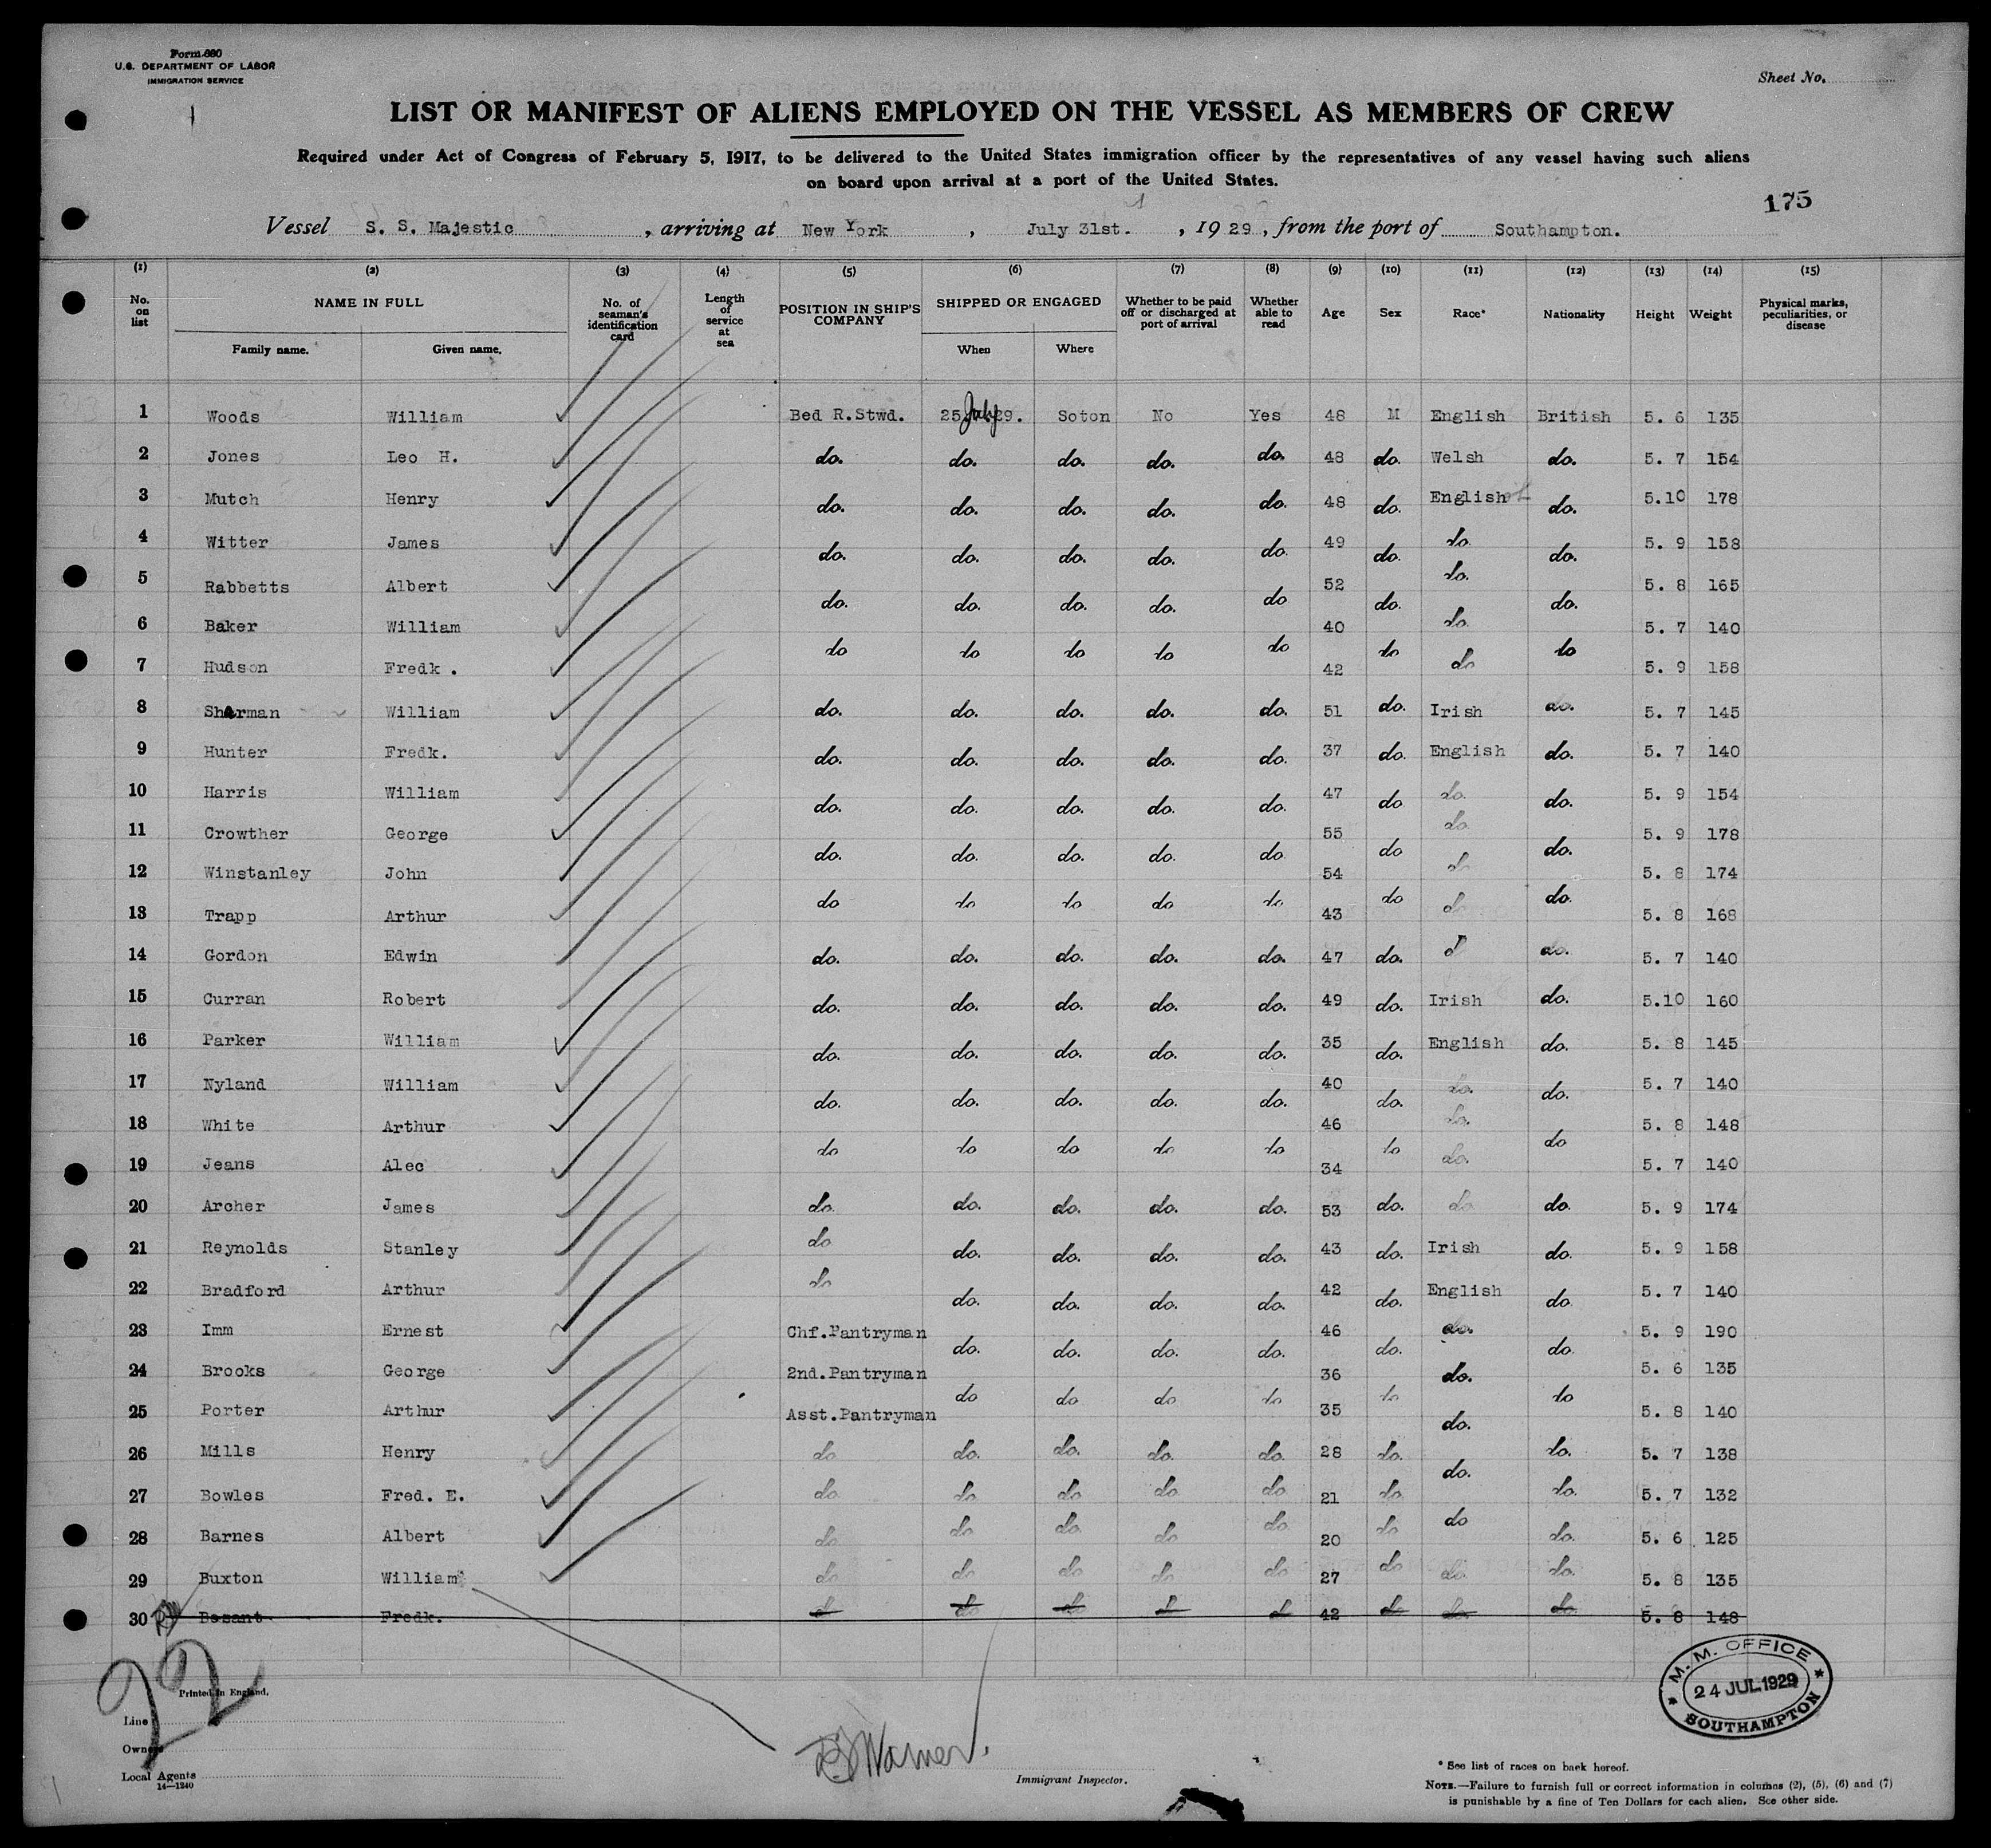 Form 680
U.S. DEPARTMENT OF LABOR
IMMIGRATION SERVICE
Sheet No.
LIST OR MANIFEST OF ALIENS EMPLOYED ON THE VESSEL AS MEMBERS OF CREW
Required under Act of Congress of February 5, 1917, to be delivered to the United States immigration officer by the representatives of any vessel having such aliens
on board upon arrival at a port of the United States.
175
Vessel S. S. Majestic, arriving at New York, July 31st., 1929, from the port of Southampton.
(1) (2) (3) (4) (5) (6) (7) (8) (9) (10) (11) (12) (13) (14) (15)
No. on list NAME IN FULL Family name. Given name. No. of seaman's identification card Length of service at sea POSITION IN SHIP'S COMPANY SHIPPED OR ENGAGED When Where Whether to be paid off or discharged at port of arrival Whether able to read Age Sex Race* Nationality Height Weight Physical marks, peculiarities, or disease
1 Woods William Bed R.Stwd. 25 July 29. Soton No Yes 48 M English British 5. 6 135
2 Jones Leo H. do. do. do. do. do. 48 do. Welsh do. 5. 7 154
3 Mutch Henry do. do. do. do. do. 48 do. English do. 5.10 178
4 Witter James do. do. do. do. do. 49 do. do. do. 5. 9 158
5 Rabbetts Albert do. do. do. do. do 52 do. do. do. 5. 8 165
6 Baker William do do do do do 40 do do. do 5. 7 140
7 Hudson Fredk . 42 do 5. 9 158
8 Sherman William do. do. do. do. do. 51 do. Irish do. 5. 7 145
9 Hunter Fredk. do. do. do. do. do. 37 do. English do. 5. 7 140
10 Harris William do. do. do. do. do. 47 do do. do. 5. 9 154
11 Crowther George do. do. do. do. do 55 do do. do. 5. 9 178
12 Winstanley John do do do do do 54 do do do. 5. 8 174
13 Trapp Arthur 43 do 5. 8 168
14 Gordon Edwin do. do. do. do. do. 47 do. d do. 5. 7 140
15 Curran Robert do. do. do. do. do. 49 do. Irish do. 5.10 160
16 Parker William do. do. do. do. do. 35 do. English do. 5. 8 145
17 Nyland William do. do. do. do. do. 40 do. do. do. 5. 7 140
18 White Arthur do do do do do 46 do do. do 5. 8 148
19 Jeans Alec 34 do. 5. 7 140
20 Archer James do. do. do. do. do. 53 do. do do. 5. 9 174
21 Reynolds Stanley do do. do. do. do. 43 do. Irish do. 5. 9 158
22 Bradford Arthur do do. do. do. do. 42 do. English do 5. 7 140
23 Imm Ernest Chf.Pantryman do. do. do. do. 46 do. do. do. 5. 9 190
24 Brooks George 2nd.Pantryman do do do do 36 do do. do 5. 6 135
25 Porter Arthur Asst.Pantryman 35 do. 5. 8 140
26 Mills Henry do do. do. do. do. 28 do. do. do. 5. 7 138
27 Bowles Fred. E. do do do do do 21 do do do. 5. 7 132
28 Barnes Albert do do do. do do 20 do do. 5. 6 125
29 Buxton William do do do do do 27 do do. do. 5. 8 135
30 Besant Fredk. d do do d d 42 do do do 5. 8 148
22
Printed in England.
Line
Owners
Local Agents
14—1240
Immigrant Inspector.
M. M. OFFICE
24 JUL 1929
SOUTHAMPTON
* See list of races on back hereof.
NOTE.—Failure to furnish full or correct information in columns (2), (5), (6) and (7)
is punishable by a fine of Ten Dollars for each alien. See other side.